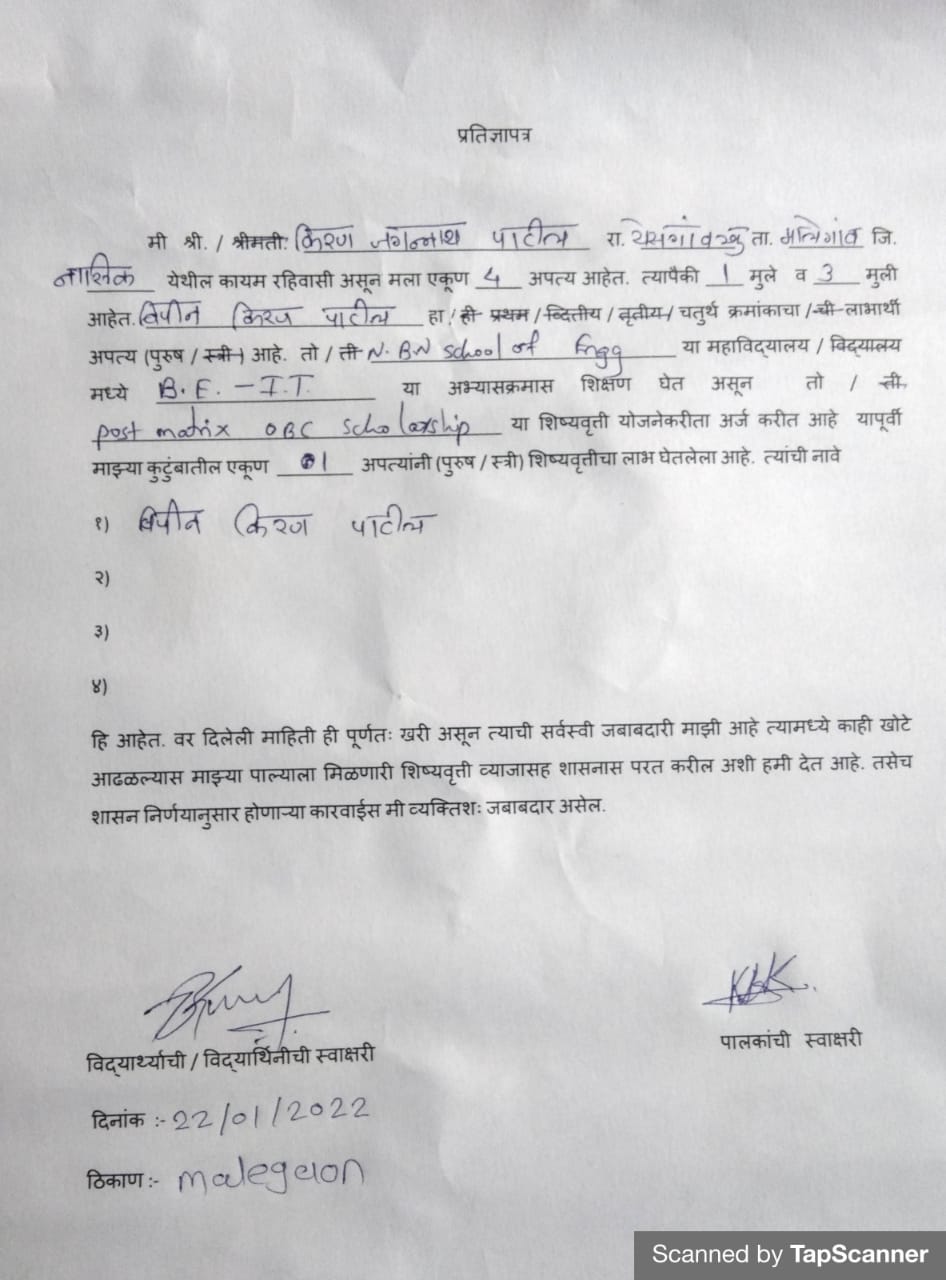 प्रतिज्ञापत्र
मी श्री. / श्रीमती. किरण जगन्नाथ पाटील रा. येसगांव खु ता. मालेगांव जि.
नाशिक येथील कायम रहिवासी असून मला एकूण 4 अपत्य आहेत. त्यापैकी 1 मुले व 3 मुली
आहेत. विपीन किरण पाटील हा / ही प्रथम / व्दितीय / तृतीय / चतुर्थ क्रमांकाचा / ची लाभार्थी
अपत्य (पुरुष / स्त्री) आहे. तो / ती N.B.N School of Engg या महाविद्यालय / विद्यालय
मध्ये B.E. - I.T. या अभ्यासक्रमास शिक्षण घेत असून तो / ती
post matrix OBC Scholarship या शिष्यवृत्ती योजनेकरीता अर्ज करीत आहे यापूर्वी
माझ्या कुटुंबातील एकूण 01 अपत्यांनी (पुरुष / स्त्री) शिष्यवृत्तीचा लाभ घेतलेला आहे. त्यांची नावे
१) विपीन किरण पाटील
२)
३)
४)
हि आहेत. वर दिलेली माहिती ही पूर्णतः खरी असून त्याची सर्वस्वी जबाबदारी माझी आहे त्यामध्ये काही खोटे
आढळल्यास माझ्या पाल्याला मिळणारी शिष्यवृत्ती व्याजासह शासनास परत करील अशी हमी देत आहे. तसेच
शासन निर्णयानुसार होणाऱ्या कारवाईस मी व्यक्तिशः जबाबदार असेल.
विद्यार्थ्याची / विद्यार्थिनीची स्वाक्षरी
पालकांची स्वाक्षरी
दिनांक :- 22/01/2022
ठिकाण :- malegaon
Scanned by TapScanner